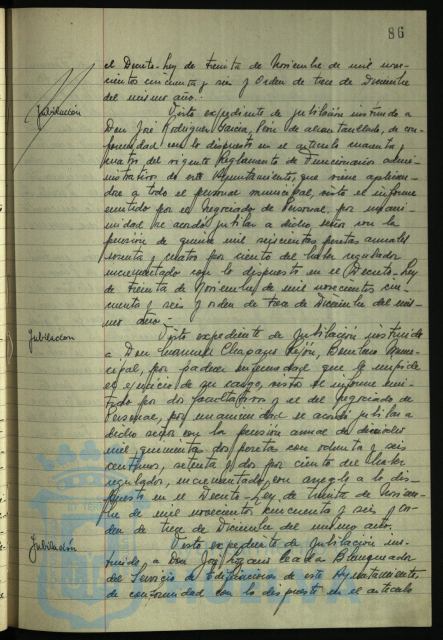 86
el Decreto-Ley de treinta de Noviembre de mil nove-
cientos cincuenta y seis y Orden de trece de Diciembre
del mismo año.-
Jubilación
Visto expediente de jubilación instruido a
Don José Rodriguez Garcia, Peón de alcantarillado, de con-
formidad con lo dispuesto en el articulo cuarenta y
cuatro del vigente Reglamento de Funcionarios admi-
nistrativos de este Ayuntamiento, que viene aplicán-
dose a todo el personal municipal, visto el informe
emitido por el Negociado de Personal, por unani-
midad se acordó jubilar a dicho señor con la
pensión de quince mil seiscientas pesetas anuales
y cuatro por ciento del haber regulador
incrementado con lo dispuesto en el Decreto-Ley
de treinta de Noviembre de mil novecientos cin-
cuenta y seis y orden de trece de Diciembre del mis-
mo año.-
Jubilacion
Visto expediente de Jubilación instruido
a Don Manuel Lejón, Bombero Muni-
cipal, por padecer enfermedad que le impide
el ejercicio de su cargo, visto el informe emi-
tido por dos facultativos y el del Negociado de
Personal, por unanimidad se acordó jubilar a
dicho señor con la pensión anual de dieciocho
mil quinientas dos pesetas con ochenta y seis
centimos, setenta y dos por ciento del haber
regulador, incrementado, con arreglo a lo dis-
puesto en el Decreto-Ley de treinta de Noviem-
bre de mil novecientos cincuenta y seis y or-
den de trece de Diciembre del mismo año.
Jubilación
Visto expediente de Jubilación ins-
truido a Don José Lozano Blanqueador
del Servicio de Edificaciones de este Ayuntamiento,
de conformidad con lo dispuesto en el articulo